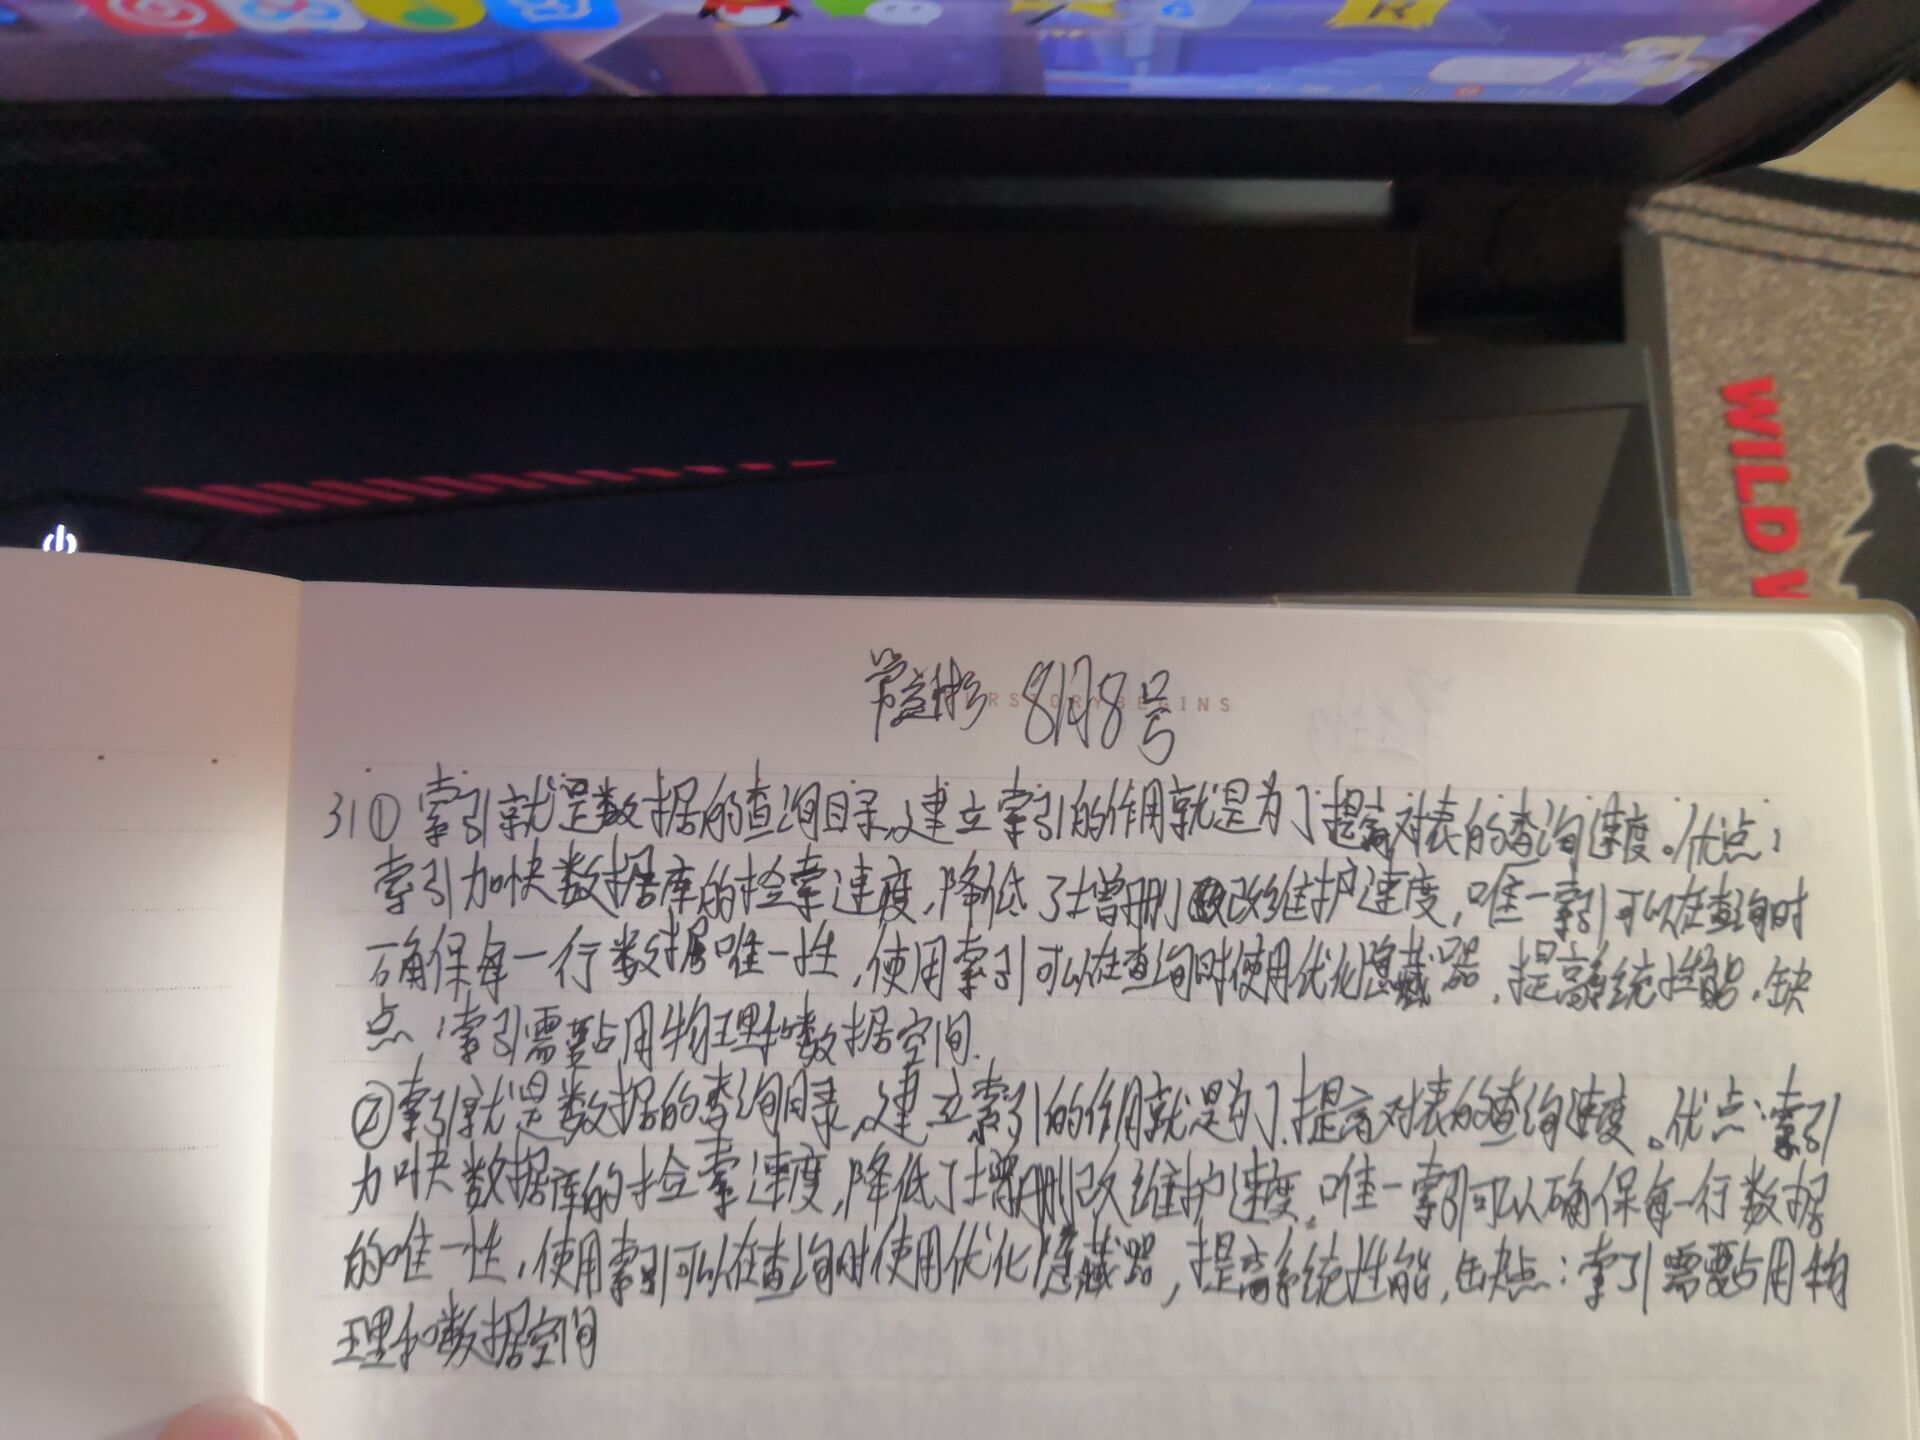 WILD W
RSTORY BEGINS
常益彬 8月8号
31 ① 索引就是数据的查询目录,建立索引的作用就是为了提高对表的查询速度。优点:
索引加快数据库的检索速度,降低了增删改维护速度,唯一索引可以在查询时
确保每一行数据唯一性,使用索引可以在查询时使用优化隐藏器,提高系统性能,缺
点:索引需要占用物理和数据空间.
②索引就是数据的查询目录,建立索引的作用就是为了提高对表的查询速度。优点:索引
加快数据库的检索速度,降低了增删改维护速度,唯一索引可以确保每一行数据
的唯一性,使用索引可以在查询时使用优化隐藏器,提高系统性能,缺点:索引需要占用物
理和数据空间